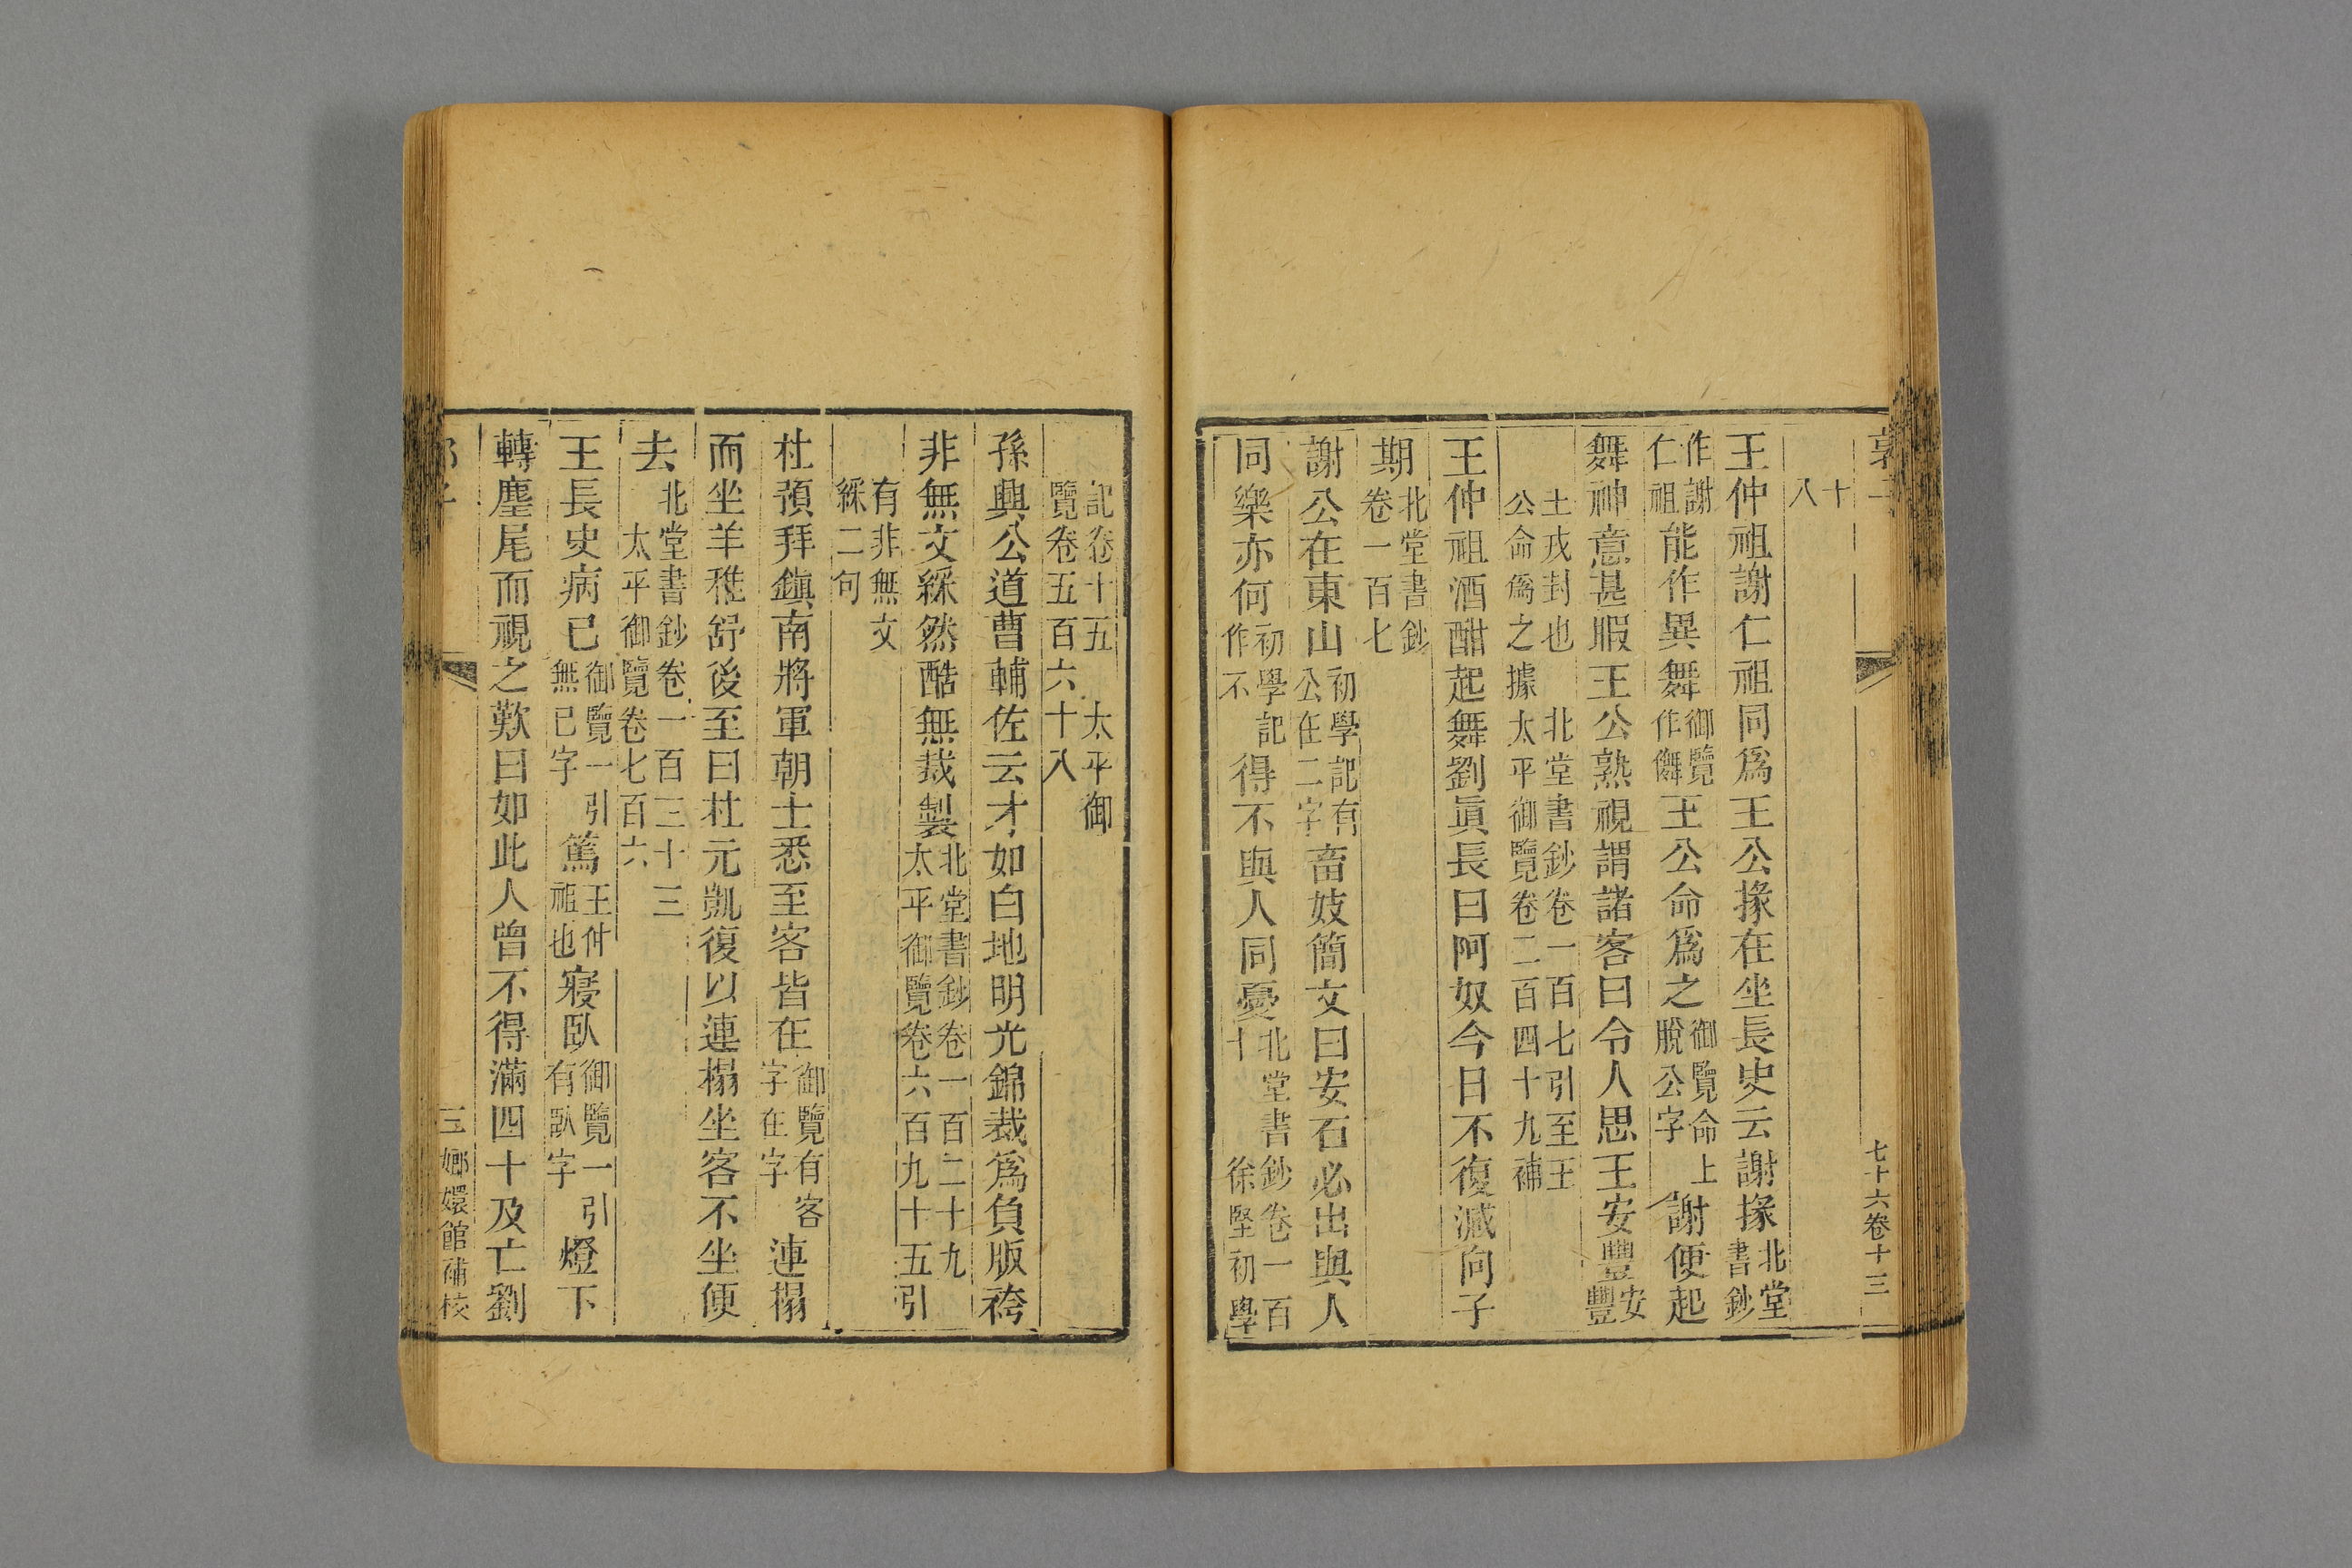 七十六卷十三
十
八
王仲祖謝仁祖同爲王公掾在坐長史云謝掾北堂書鈔
作謝仁祖能作異舞御覽作儛王公命爲之御覽命上脫公字謝便起
舞神意甚暇王公熟視謂諸客曰令人思王安豐安豐
王戎封也 北堂書鈔卷一百七引至王
公命爲之據太平御覽卷二百四十九補
王仲祖酒酣起舞劉眞長曰阿奴今日不復減向子
期北堂書鈔卷一百七
謝公在東山初學記有公在二字畜妓簡文曰安石必出與人
同樂亦何初學記作不得不與人同憂北堂書鈔卷一百十 徐堅初學
記卷十五 太平御
覽卷五百六十八
孫興公道曹輔佐云才如白地明光錦裁爲負版袴
非無文綵然酷無裁製北堂書鈔卷一百二十九太平御覽卷六百九十五引
有非無文
綵二句
杜預拜鎭南將軍朝士悉至客皆在御覽有客字在字連榻
而坐羊稚舒後至曰杜元凱復以連榻坐客不坐便
去北堂書鈔卷一百三十三太平御覽卷七百六
王長史病已御覽一引無已字篤王仲祖也寑臥御覽一引有臥字燈下
轉麈尾而視之歎曰如此人曾不得滿四十及亡劉
三 嫏嬛館補校